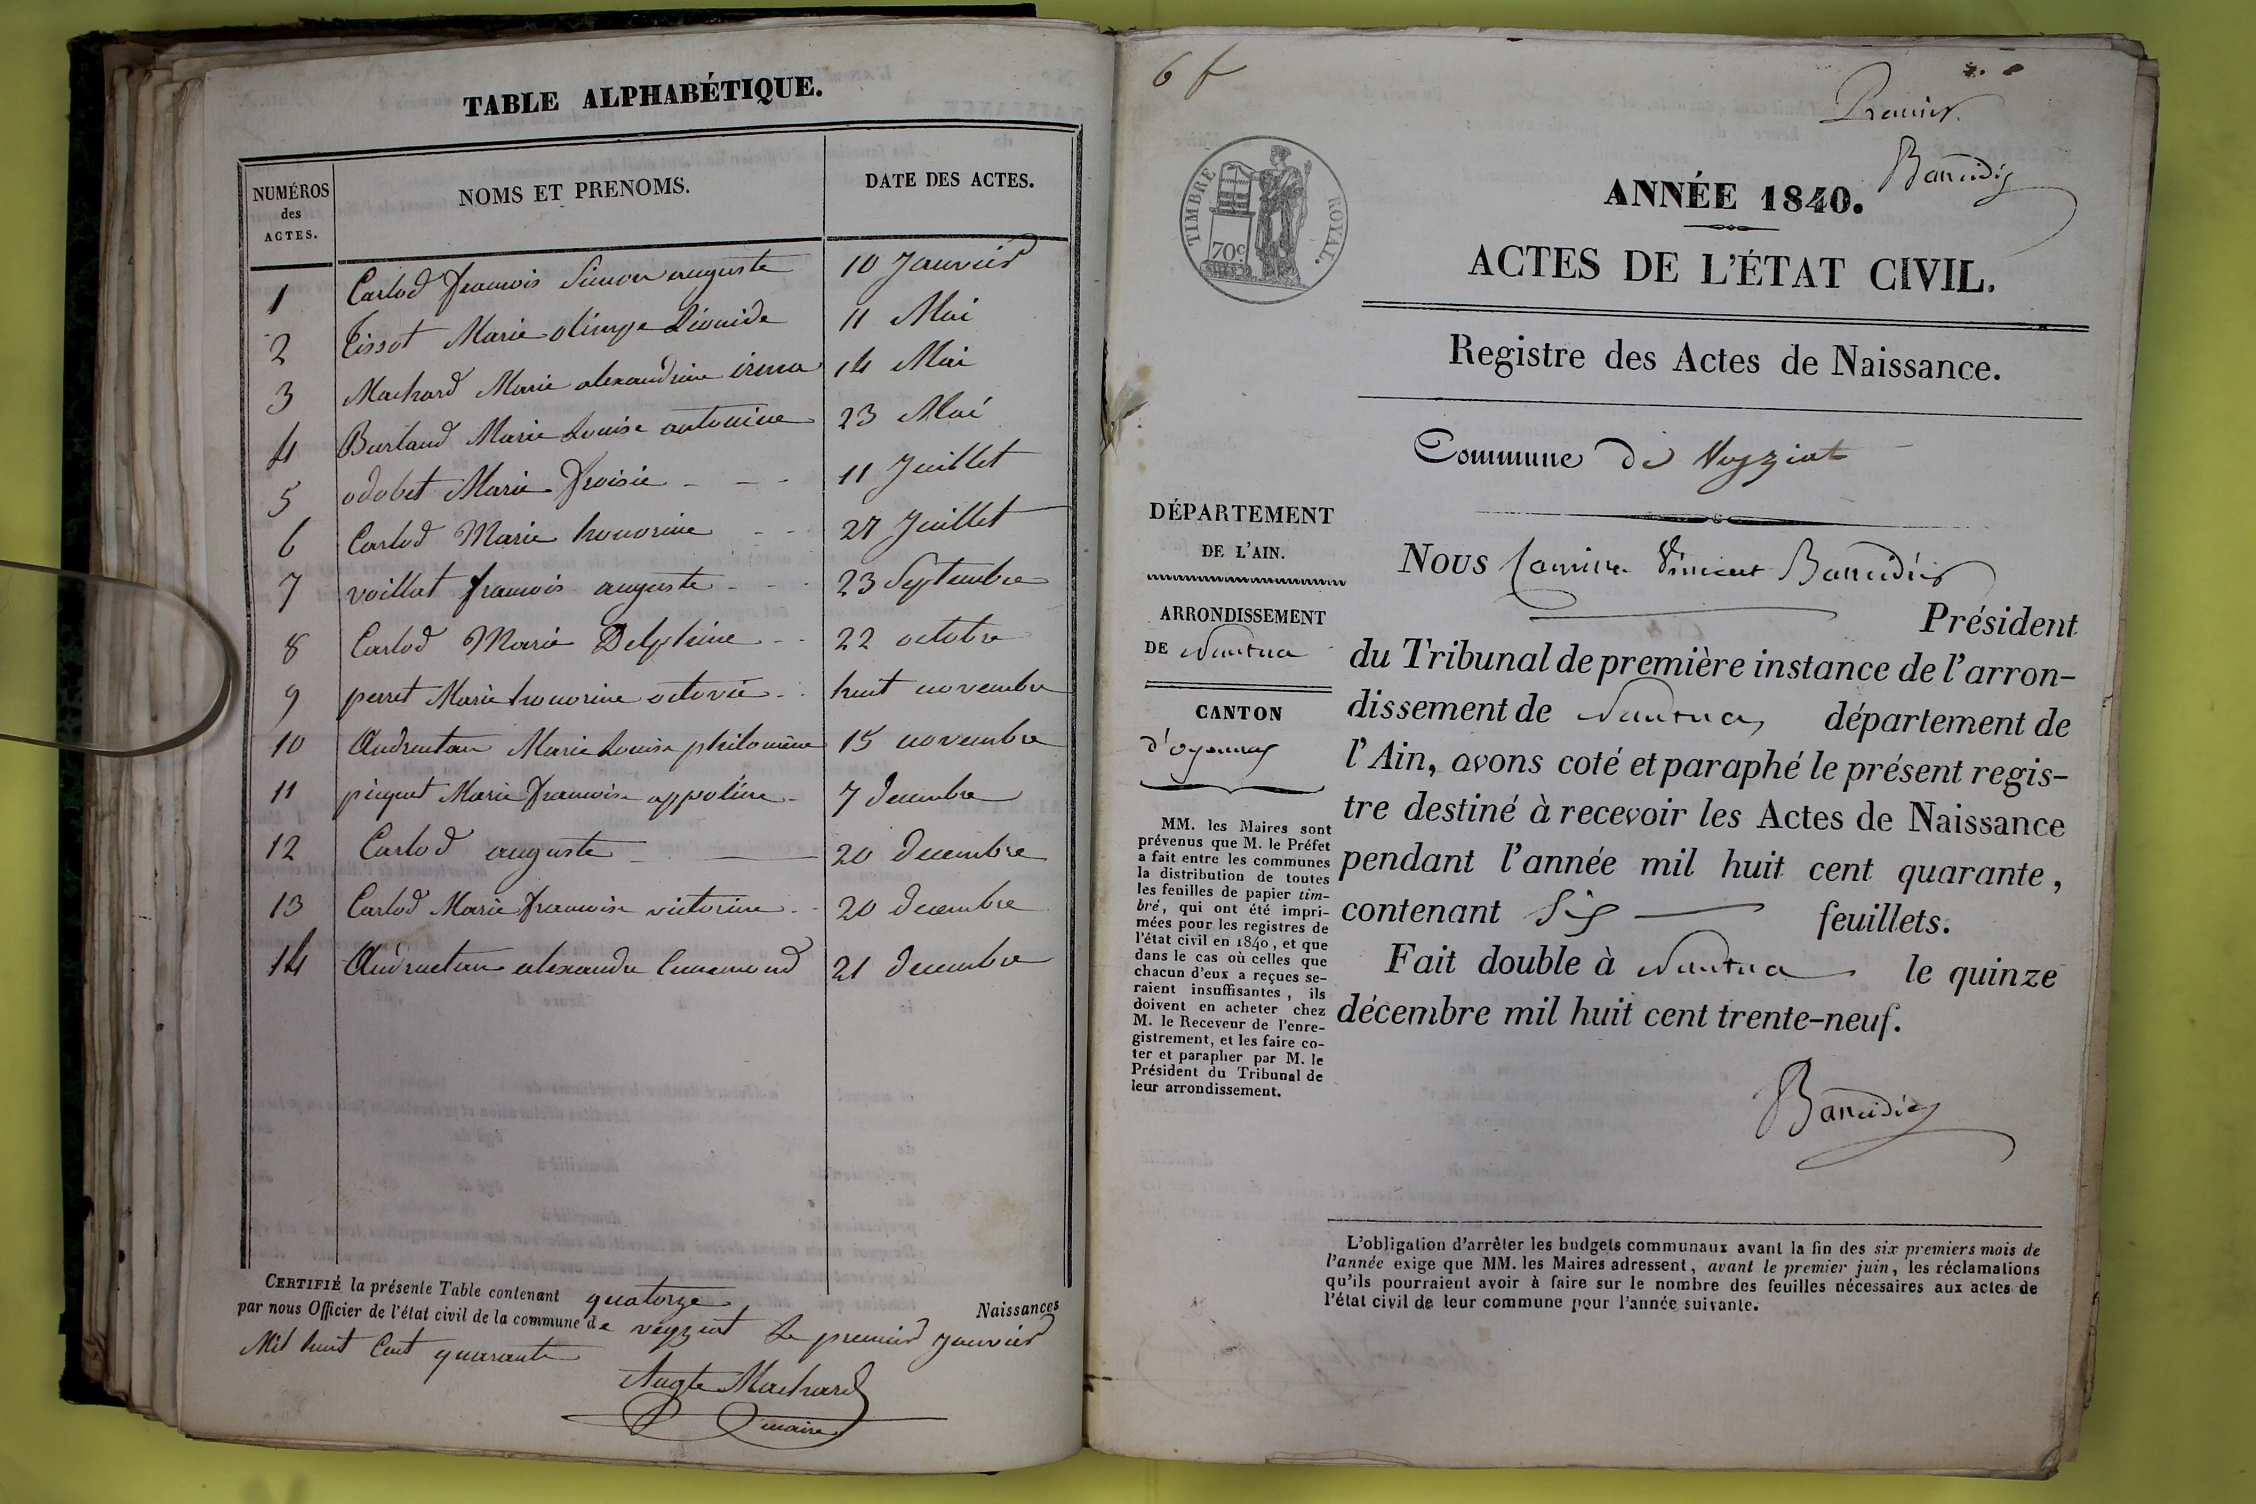 TABLE ALPHABÉTIQUE.
NUMÉROS des ACTES. NOMS ET PRENOMS. DATE DES ACTES.
1 Carlod francois Simon auguste 10 Janvier
2 Tissot Marie olimpe Léonide 11 Mai
3 Machard Marie alexandrine irma 14 Mai
4 Burlaud Marie Louise antonine 23 Mai
5 odobet Marie froisie 11 Juillet
6 Carlod Marie honorine 27 Juillet
7 voillat francois auguste 23 Septembre
8 Carlod Marie Delphine 22 octobre
9 perret Marie honorine octavie huit novembre
10 Marie Louise philomène 15 novembre
11 piquet Marie francoise appoline 7 decembre
12 Carlod auguste 20 decembre
13 Carlod Marie francoise victorine 20 decembre
14 alexandre 21 decembre
CERTIFIÉ la présente Table contenant quatorze Naissances
par nous Officier de l'état civil de la commune de veyziat Le premier Janvier
Mil huit Cent quarante
Augte Machard
maire
6 f
Premier.
Barrudier
TIMBRE ROYAL.
70c
ANNÉE 1840.
ACTES DE L'ÉTAT CIVIL.
Registre des Actes de Naissance.
Commune de Veyziat
DÉPARTEMENT
DE L'AIN.
ARRONDISSEMENT
DE Nantua
CANTON
d'oyonnax
MM. les Maires sont
prévenus que M. le Préfet
a fait entre les communes
la distribution de toutes
les feuilles de papier tim-
bré, qui ont été impri-
mées pour les registres de
l'état civil en 1840, et que
dans le cas où celles que
chacun d'eux a reçues se-
raient insuffisantes, ils
doivent en acheter chez
M. le Receveur de l'enre-
gistrement, et les faire co-
ter et parapher par M. le
Président du Tribunal de
leur arrondissement.
Nous Vincent Barrudier
Président
du Tribunal de première instance de l'arron-
dissement de Nantua, département de
l'Ain, avons coté et paraphé le présent regis-
tre destiné à recevoir les Actes de Naissance
pendant l'année mil huit cent quarante,
contenant Six feuillets.
Fait double à Nantua le quinze
décembre mil huit cent trente-neuf.
Barrudier
L'obligation d'arrêter les budgets communaux avant la fin des six premiers mois de
l'année exige que MM. les Maires adressent, avant le premier juin, les réclamations
qu'ils pourraient avoir à faire sur le nombre des feuilles nécessaires aux actes de
l'état civil de leur commune pour l'année suivante.